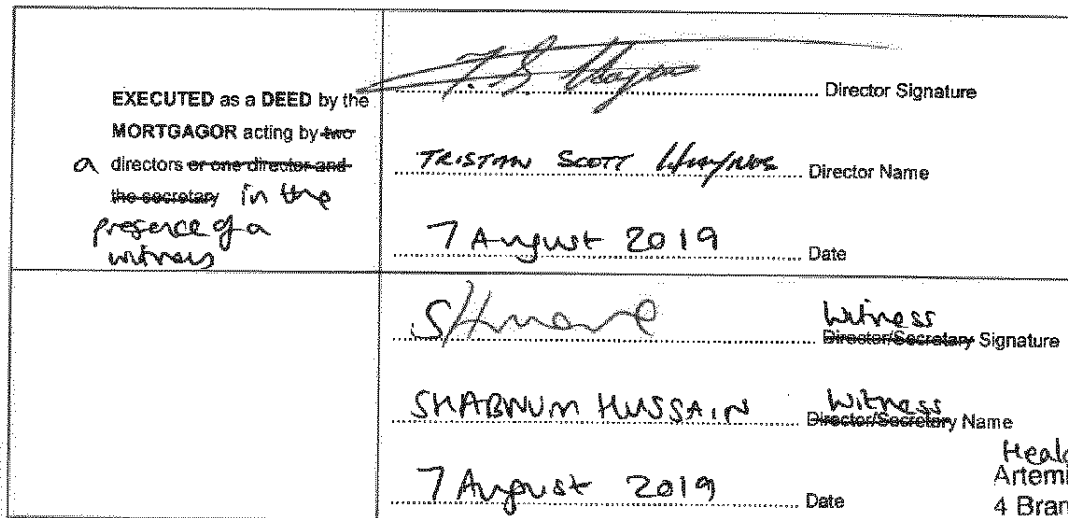 EXECUTED as a DEED by the
MORTGAGOR acting by two
a directors or one director and
the secretary in the
presence of a
witness
T. S. Haynes Director Signature
TRISTAN SCOTT HAYNES Director Name
7 August 2019 Date
Witness
Director/Secretary Signature
SHABNUM HUSSAIN
Witness
Director/Secretary Name
7 August 2019 Date
Heald
Artemi
4 Bran